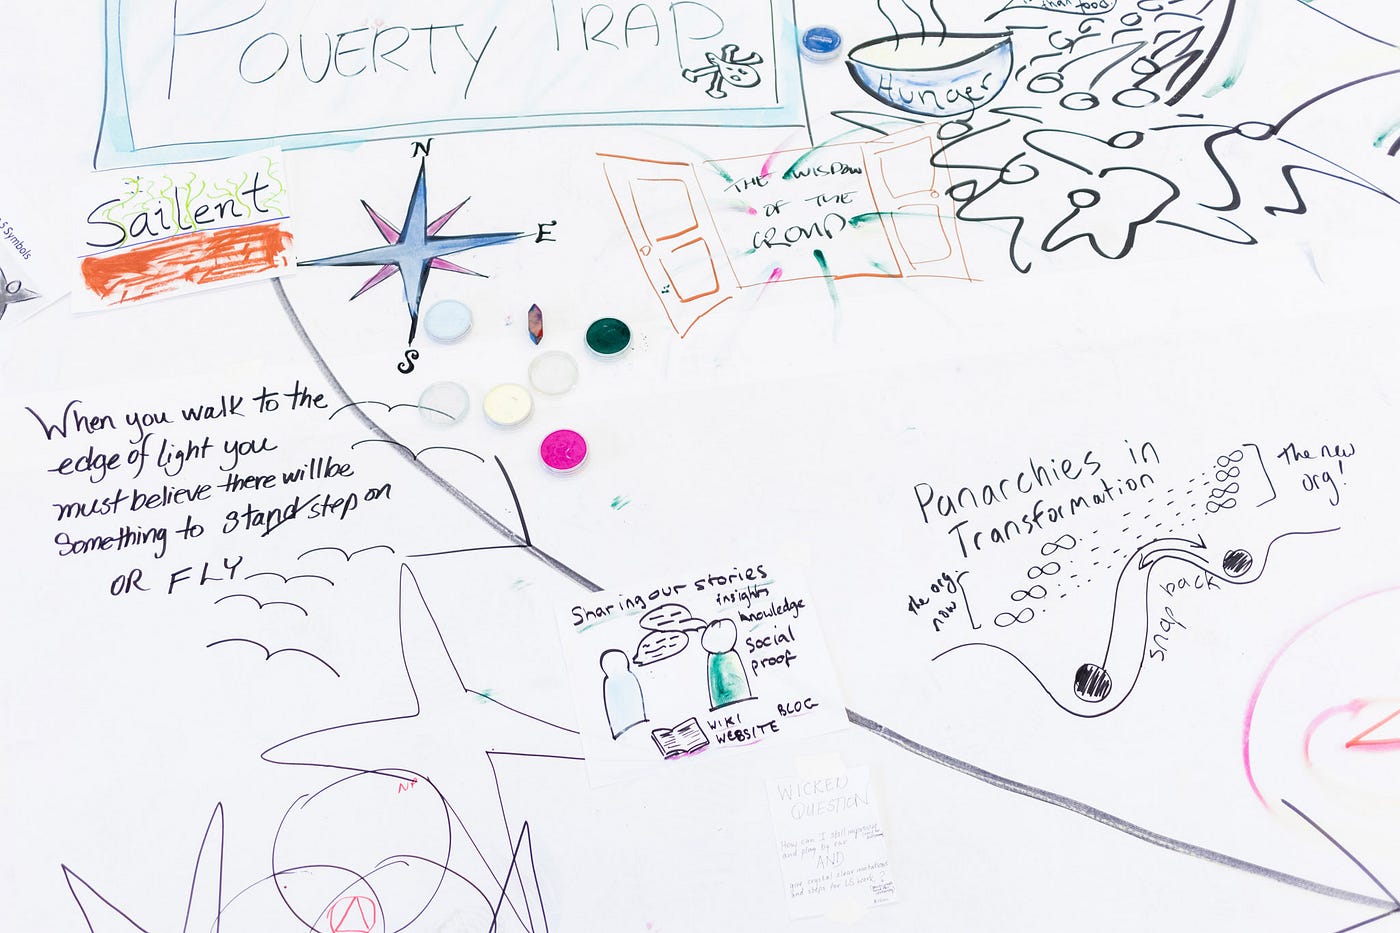 POVERTY TRAP
than food
Hunger
N
E
S
Sailent
Symbols
THE WISDOM
OF THE
CROWD
When you walk to the
edge of light you
must believe there will be
something to stand/step on
OR FLY
Panarchies in
Transformation
the new
org!
the org
now
snap back
Sharing our stories
insights
knowledge
social
proof
WIKI
BLOG
WEBSITE
NA
WICKED
QUESTION
How can I still improvise
and play by ear
AND
give crystal clear invitations
and steps for LS work?